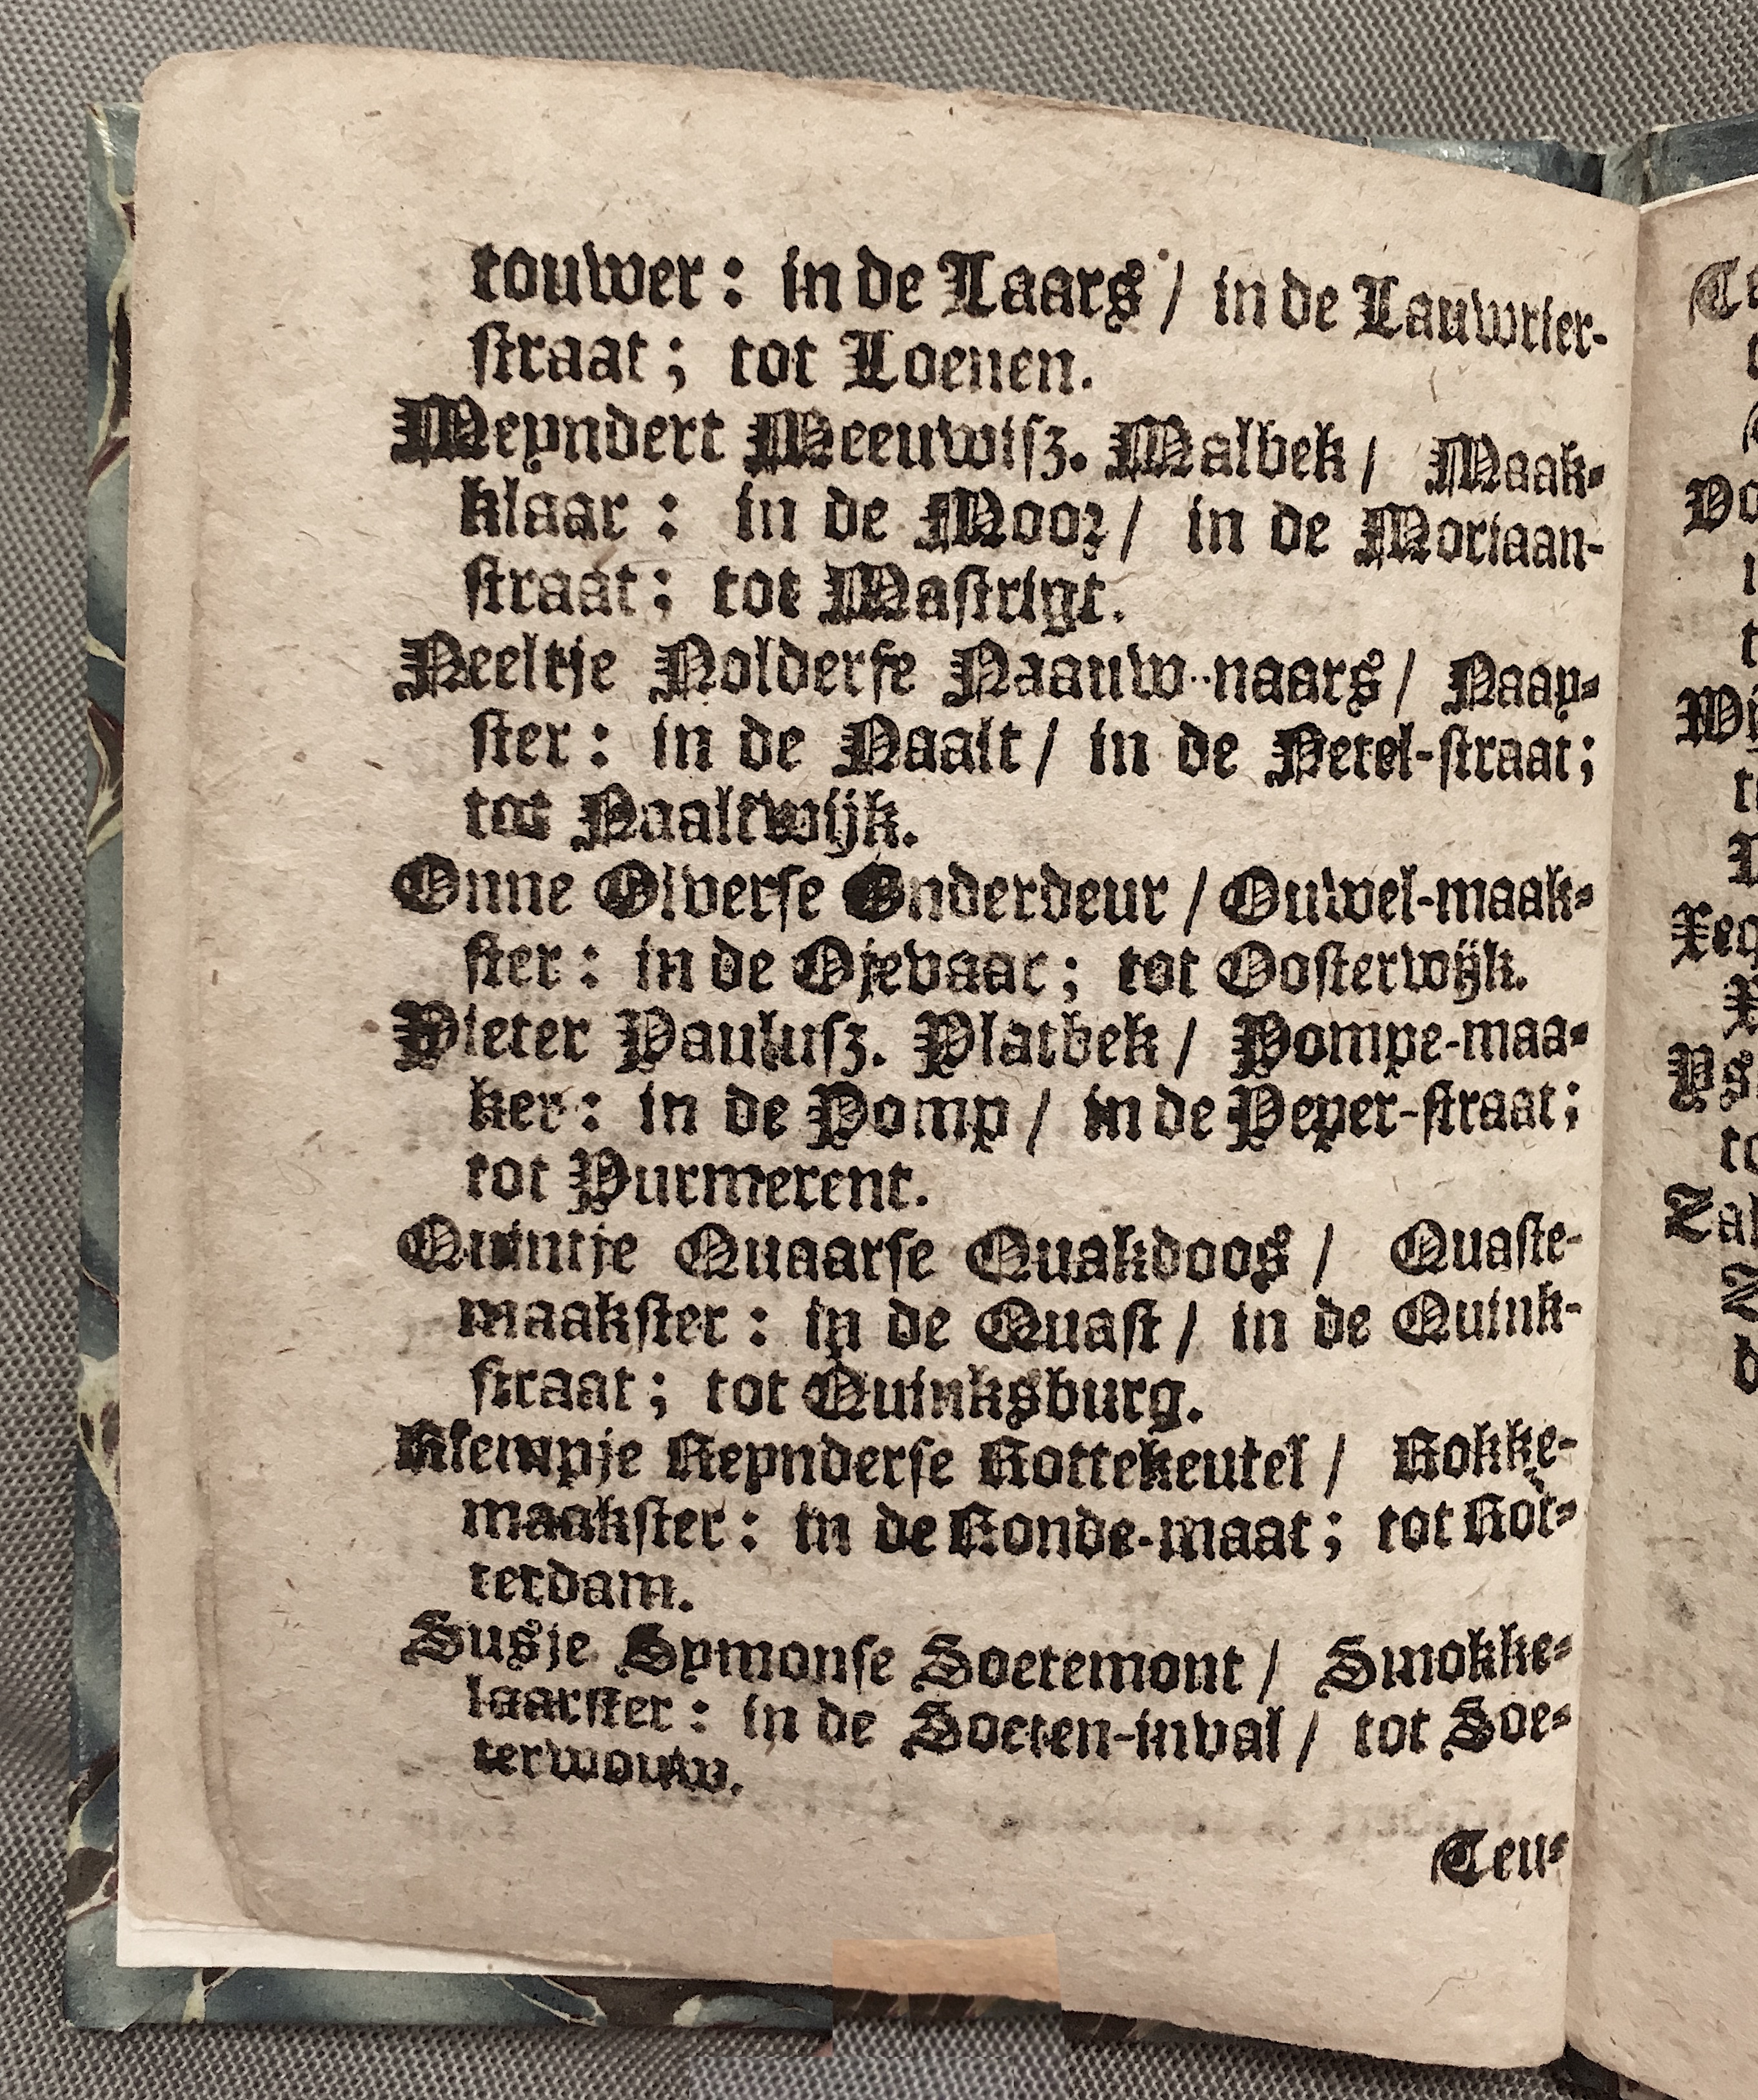 touwer: in de Laars / in de Lauwrier-
straat; tot Loenen.
Meyndert Meeuwisz. Malbek / Maak-
klaar: in de Moor / in de Moriaan-
straat; tot Mastrigt.
Neeltje Nolderse Naauw-naars / Naay-
ster: in de Naalt / in de Netel-straat;
tot Naaltwijk.
Onne Olverse Onderdeur / Ouwel-maak-
ster: in de Ojevaar; tot Oosterwijk.
Pieter Paulusz. Platbek / Pompe-maa-
ker: in de Pomp / in de Peper-straat;
tot Purmerent.
Quintje Quaarse Quakdoos / Quaste-
maakster: in de Quast / in de Quink-
straat; tot Quinksburg.
Riempje Reynderse Rottekeutel / Rokke-
maakster: in de Ronde-maat; tot Rot-
terdam.
Susje Symonse Soetemont / Smokke-
laarster: in de Soeten-inval / tot Soe-
terwouw.
Teu-